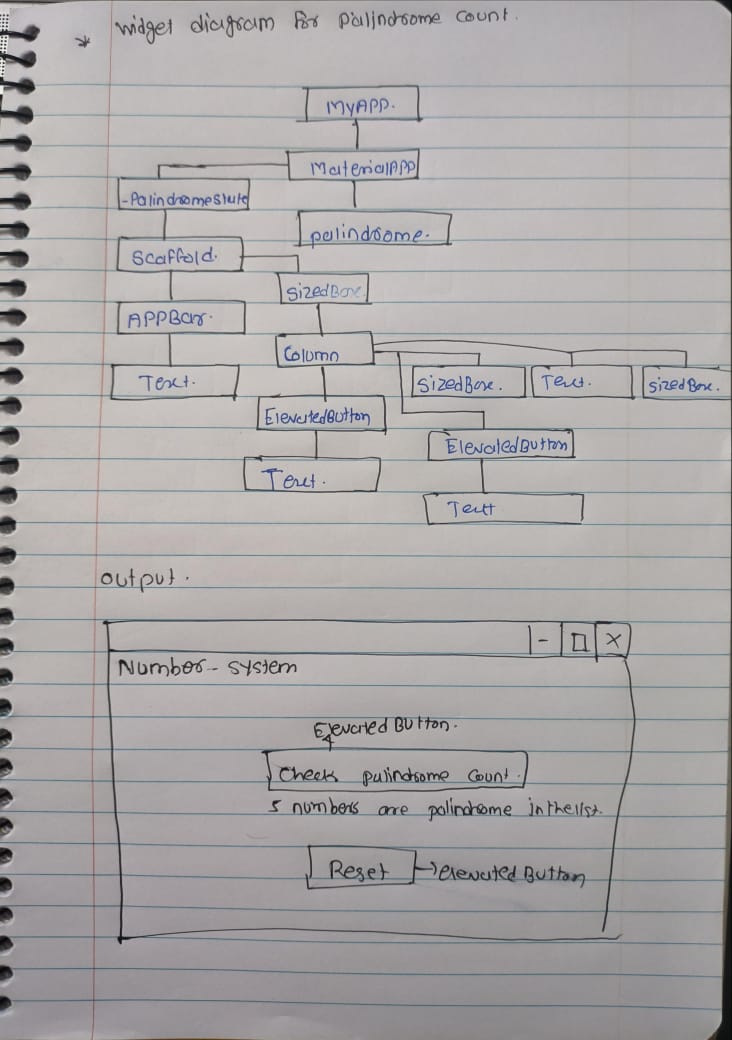 * widget diagram for palindrome count.
MyAPP.
MaterialAPP
-PalindromeState
palindrome.
Scaffold.
SizedBox
APPBar.
Column
Text.
SizedBox.
Text.
sizedBox.
ElevatedButton
ElevatedButton
Text.
Text
output.
- □ X
Number-system
Elevated Button.
Check palindrome Count.
5 numbers are palindrome in the list.
Reset → elevated Button